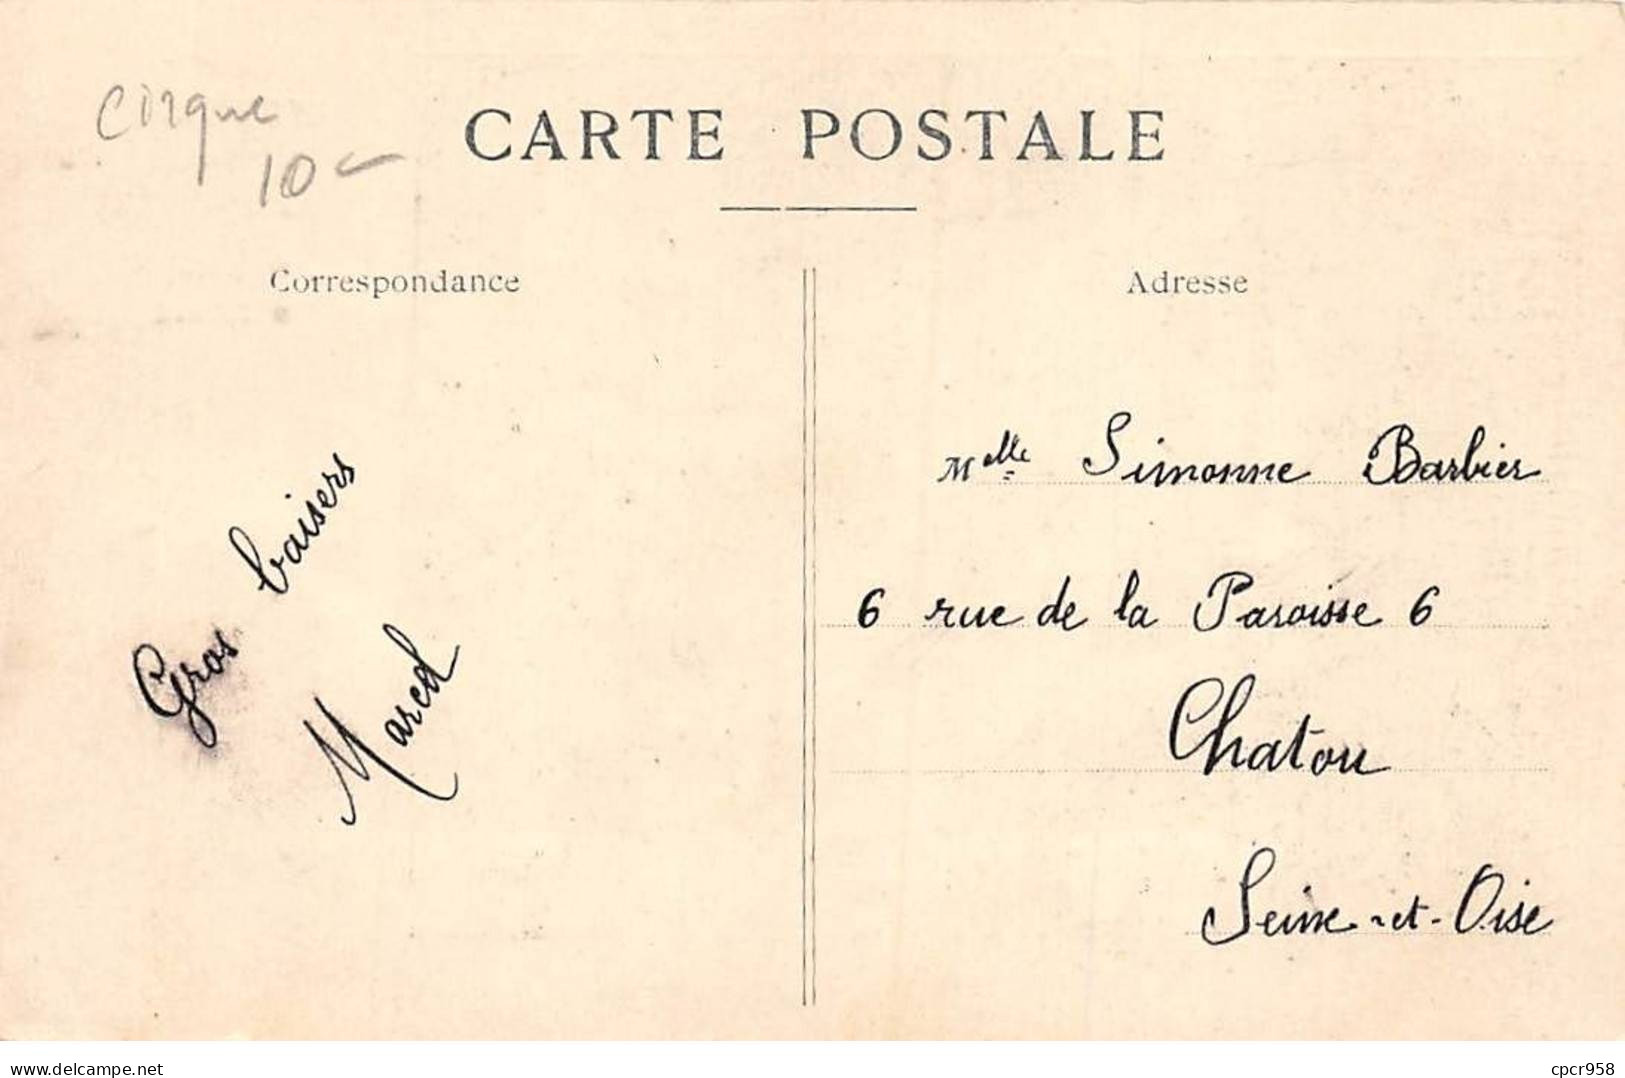 Cirque
10
CARTE POSTALE
Correspondance
Gros baisers
Marcel
Adresse
Melle Simonne Barbier
6 rue de la Paroisse 6
Chatou
Seine-et-Oise
www.delcampe.net
cpcr958